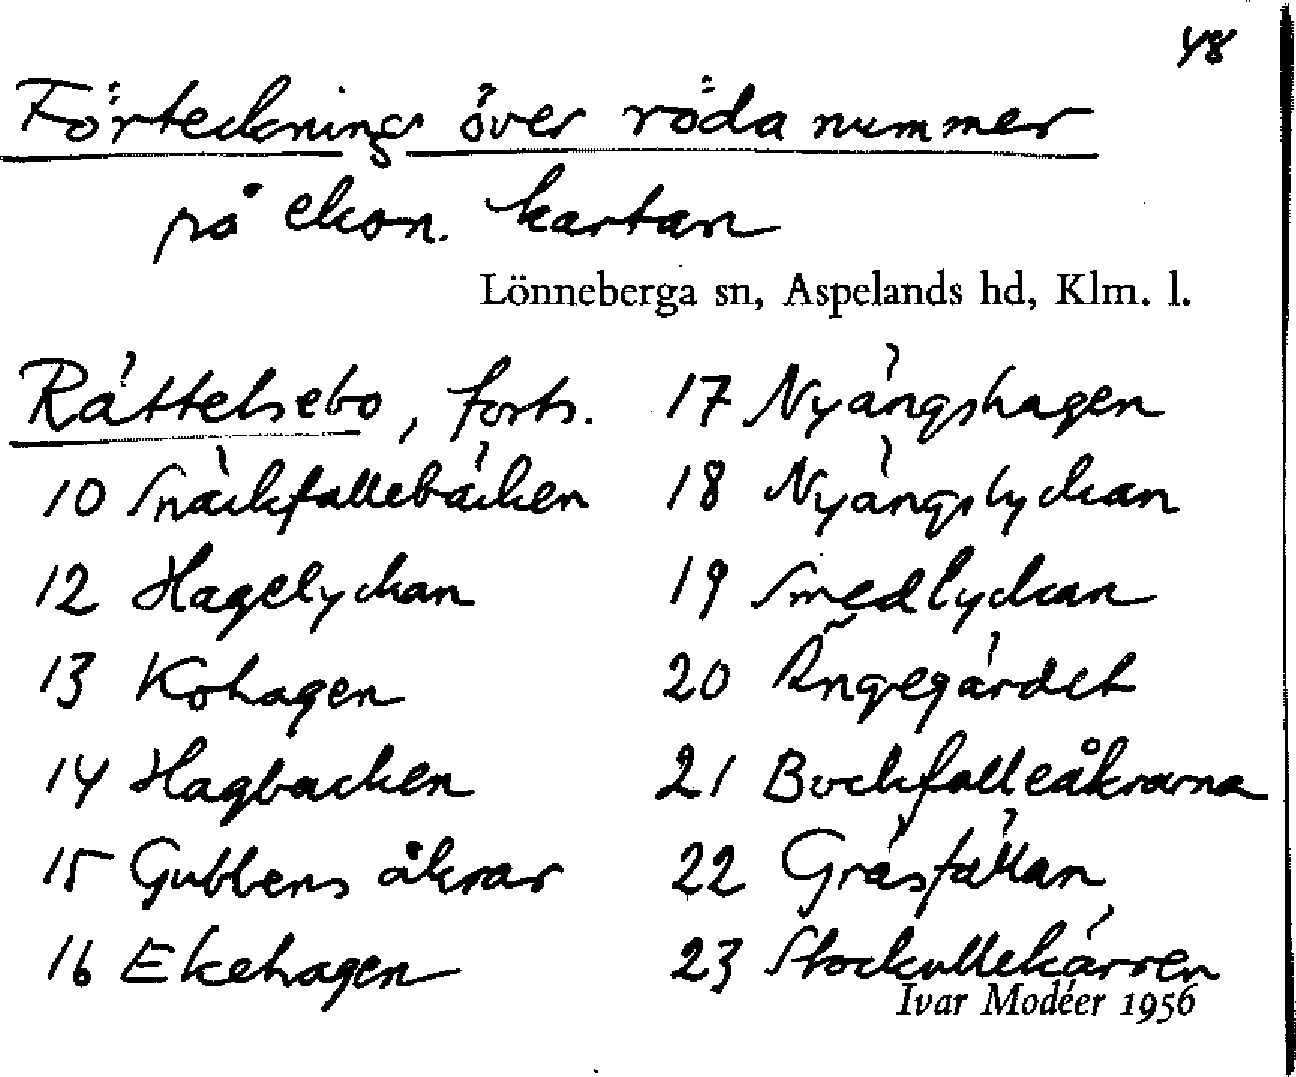 48
Förteckning över röda nummer
på ekon. kartan
Lönneberga sn, Aspelands hd, Klm. l.
Rättelsebo, forts.
10 Snäckfallebäcken
12 Hagelyckan
13 Kohagen
14 Hagbacken
15 Gubbens åkrar
16 Ekehagen
17 Nyängshagen
18 Nyängslyckan
19 Smedlyckan
20 Ängegärdet
21 Bockfalleåkrarna
22 Gräsfällan
23 Stockullekärren
Ivar Modéer 1956